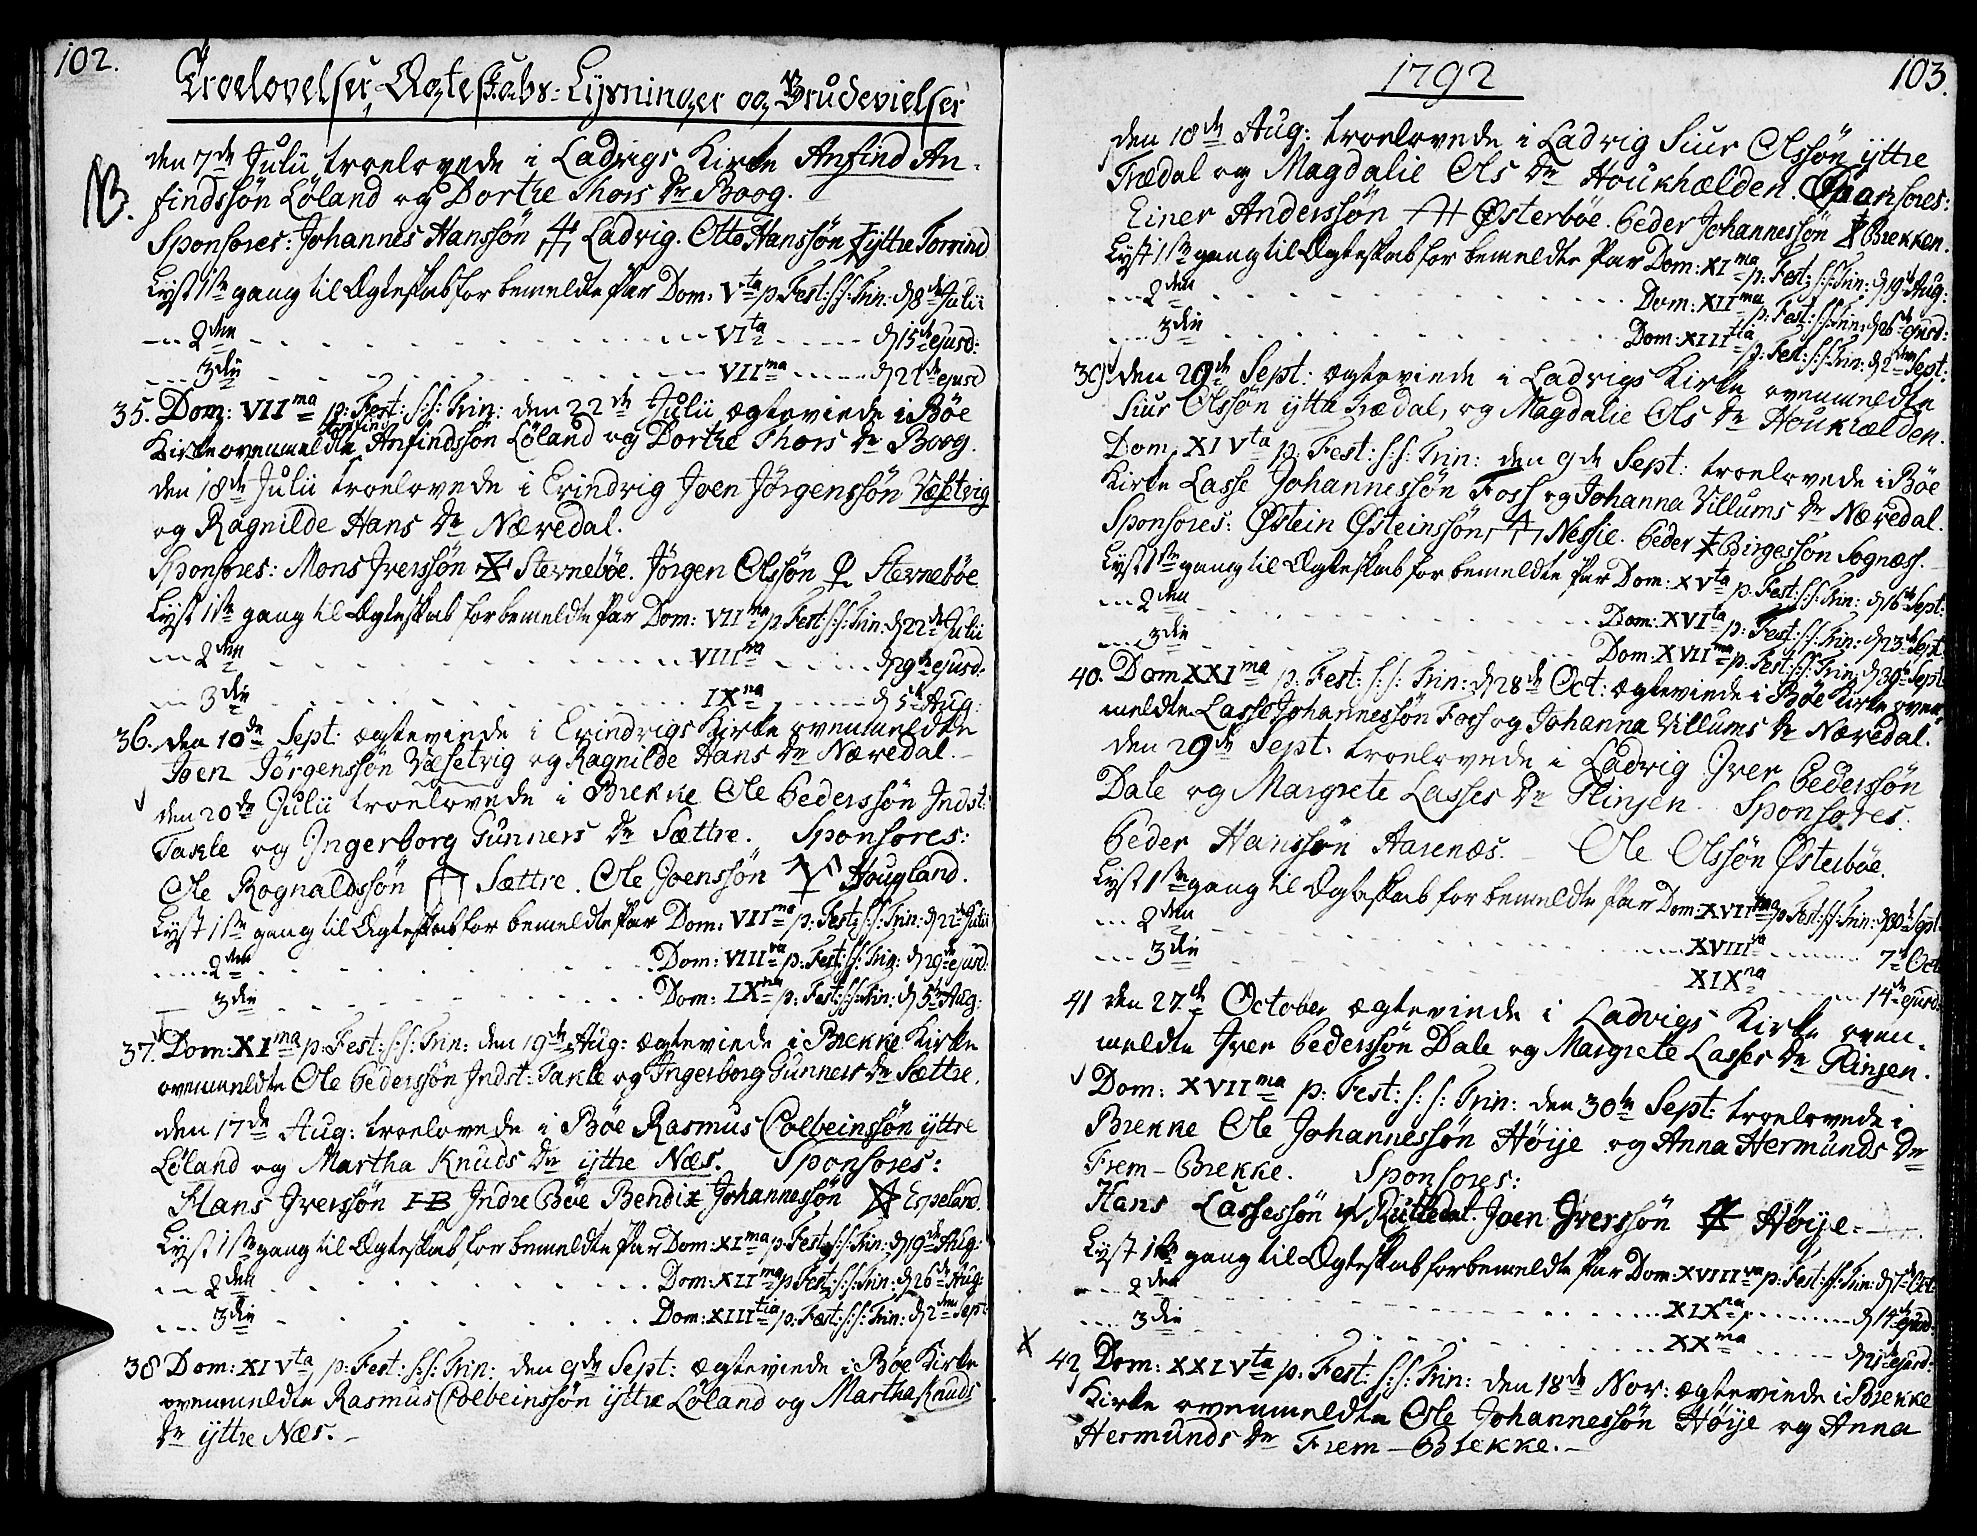 102.
Troelovelser, Ægteskabs-Lysninger og Brudevielser
NB.
den 7de Julii troelovede i Ladvigs Kirke Anfind An-
findssön Löland og Dorthe Thors Dr Boog.
Sponsores: Johannes Hanssön Ladvig. Otto Hanssön yttre Torvind
Lyst 1ste gang til Ægteskab for bemeldte Par Dom: Vta p: Fest: s:s: Trin: d 8de Julii
--- 2den - - - VIta - - - d 15de ejusd:
--- 3die - - - VIIma - - - d 21de ejusd
35. Dom: VIIma p: Fest: s:s: Trin: den 22de Julii ægteviede i Böe
Kirke ovenmeldte Anfind Anfindssön Löland og Dorthe Thors Dr Boog.
den 18de Julii troelovede i Evindvig Joen Jörgenssön Væsetvig
og Ragnilde Hans Dr Næredal.
Sponsores: Mons Iverssön Stevneböe. Jörgen Olssön Stevneböe
Lyst 1ste gang til Ægteskab for bemeldte Par Dom: VIIma p: Fest: s:s: Trin: d 22de Julii
--- 2den - - - VIIIva - - - d 29de ejusd:
--- 3die - - - IXna - - - d 5te Aug:
36. den 10de Sept: ægteviede i Evindvigs Kirke ovenmeldte
Joen Jörgenssön Væsetvig og Ragnilde Hans Dr Næredal.
den 20de Julii troelovede i Brekke Ole Pederssön Indst:
Takle og Ingerborg Gunners Dr Sættre. Sponsores:
Ole Rognaldssön Sættre. Ole Joenssön Hougland.
Lyst 1ste gang til Ægteskab for bemeldte Par Dom: VIIma p: Fest: s:s: Trin: d 22de Julii
--- 2den - - - Dom: VIIIva p: Fest: s:s: Trin: d 29de ejusd:
3die - - - Dom: IXna p: Fest: s:s: Trin: d 5te Aug:
37. Dom: XIma p: Fest: s:s: Trin: den 19de Aug: ægteviede i Brekke Kirke
ovenmeldte Ole Pederssön Indst: Takle og Ingerborg Gunners Dr Sættre.
den 17de Aug: troelovede i Böe Rasmus Colbeinssön yttre
Löland og Martha Knuds Dr yttre Næs. Sponsores:
Hans Iverssön IB Indre Böe Bendix Johannessön Espeland.
Lyst 1ste gang til Ægteskab for bemeldte Par Dom: XIma p: Fest: s:s: Trin: d 19de Aug:
--- 2den - - - Dom: XIIma p: Fest: s:s: Trin: d 26de Aug:
--- 3die - - - Dom: XIIItia p: Fest: s:s: Trin: d 2den Sept:
38 Dom: XIVta p: Fest: s:s: Trin: den 9de Sept: ægteviede i Böe Kirke
ovenmeldte Rasmus Colbeinssön yttre Löland og Martha Knuds
Dr yttre Næs.
1792
103.
den 18de Aug: troelovede i Ladvig Siur Olssön yttre
Trædal og Magdalie Ols Dr Houkhælden. Sponsores:
Einer Anderssön Østerböe. Peder Johannessön Brekken.
Lyst 1ste gang til Ægteskab for bemeldte Par Dom: XIma p: Fest: s:s: Trin: d 19de Aug:
--- 2den - - - Dom: XIIma p: Fest: s:s: Trin: d 26de ejusd:
--- 3die - - - Dom: XIIItia p: Fest: s:s: Trin: d 2den Sept:
39 den 29de Sept: ægteviede i Ladvigs Kirke ovenmeldte
Siur Olssön yttre Trædal, og Magdalie Ols Dr Houkhælden.
Dom: XIVta p: Fest: s:s: Trin: den 9de Sept: troelovede i Böe
Kirke Lasse Johannessön Foss og Johanna Villums Dr Næredal.
Sponsores: Østein Østeinssön Nessie. Peder Birgessön Sognæs.
Lyst 1ste gang til Ægteskab for bemeldte Par Dom: XVta p: Fest: s:s: Trin: d 16de Sept:
--- 2den - - - Dom: XVIta p: Fest: s:s: Trin: d 23de Sept.
--- 3die - - - Dom: XVIIma p: Fest: s:s: Trin: d 30te Sept
40. Dom XXIma p: Fest: s:s: Trin: d 28de Oct: ægteviede i Böe Kirke oven-
meldte Lasse Johannessön Foss og Johanna Villums Dr Næredal.
den 29de Sept. troelovede i Ladvig Iver Pederssön
Dale og Margrete Lasses Dr Flinjen. Sponsores.
Peder Hanssön Harenæs. - Ole Olssön Østerböe.
Lyst 1ste gang til Ægteskab for bemeldte Par Dom: XVIIma p: Fest: s:s: Trin: d 30te Sept
--- 2den - - - XVIIIva - - - 7de Oct
--- 3die - - - XIXna - - - 14de ejusd:
41 den 27de October ægteviede i Ladvigs Kirke oven-
meldte Iver Pederssön Dale og Margrete Lasses Dr Flinjen.
Dom: XVIIma p: Fest: s:s: Trin: den 30te Sept: troelovede i
Brekke Ole Johannessön Höije og Anna Hermunds Dr
Frem-Brekke. Sponsores:
Hans Lassessön Rutledal. Joen Iverssön Höije.
Lyst 1ste gang til Ægteskab for bemeldte Par Dom: XVIIIva p: Fest: s:s: Trin: d 7de Oct:
--- 2den - - - XIXna - - - d 14de ejusd:
--- 3die - - - XXma - - - d 21de ejusd:
X 42 Dom: XXIVta p: Fest: s:s: Trin: den 18de Nov: ægteviede i Brekke
Kirke ovenmeldte Ole Johannessön Höije og Anna
Hermunds Dr Frem-Brekke.